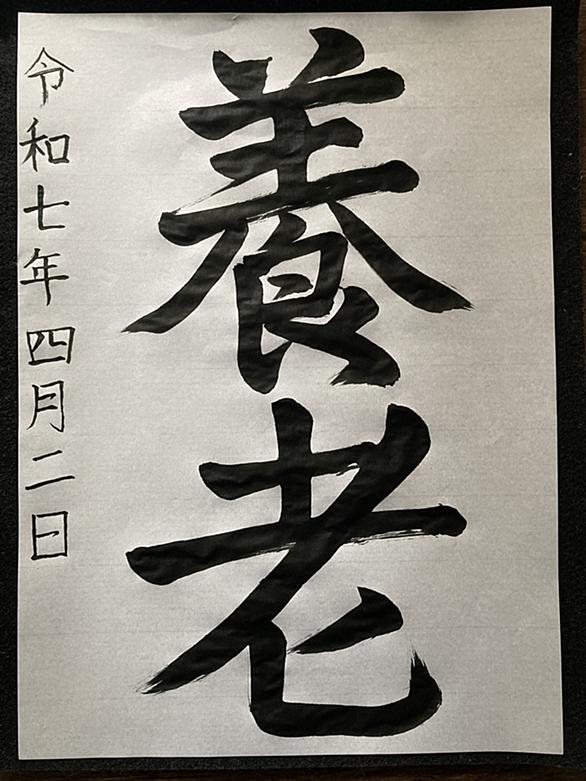 養老
令和七年四月二日